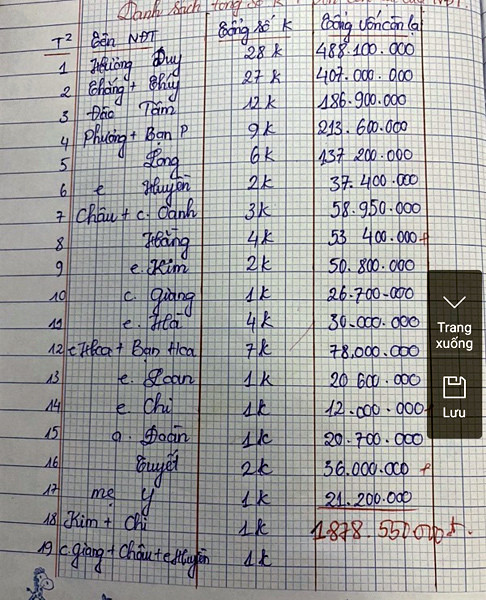 Danh Sách tổng số K
TT Tên NĐT Tổng số K Tổng vốn còn lại
1 Hương Duy 28 K 488.100.000
2 Thắng + Thúy 27 K 407.000.000
3 Đào Tấm 12 K 186.900.000
4 Phương + Bạn P 9 K 213.600.000
5 Long 6 K 137 200.000
6 e Huyền 2 K 37.400.000
7 Châu + c. Oanh 3 K 58.950.000
8 Hằng 4 K 53 400.000
9 e. Kim 2 K 50.800.000
10 c. Giang 1 K 26.700.000
11 e. Hà 4 K 30.000.000
12 c Hoa + Bạn Hoa 7 K 78.000.000
13 e. Loan 1 K 20 600.000
14 e. Chi 1 K 12.000.000
15 a. Đoàn 1 K 20.700.000
16 Tuyết 2 K 36.000.000 +
17 mẹ Y 1 K 21.200.000
18 Kim + Chi 1 K 1878.550
19 c. Giang + Châu + e Huyền 1 K
Trang
xuống
Lưu